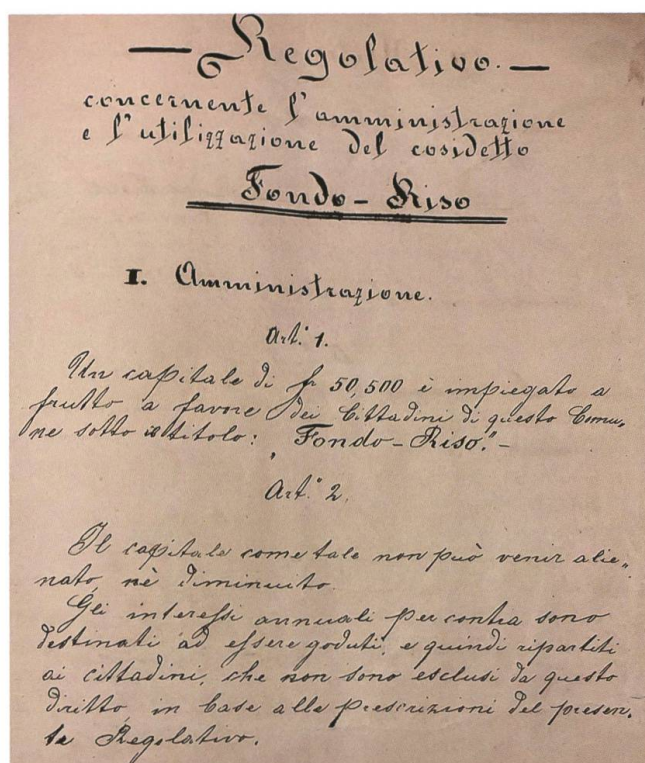 — Regolativo. —
concernente l'amministrazione
e l'utilizzazione del cosidetto
Fondo - Riso
I. Amministrazione.
Art.° 1.
Un capitale di fr 50,500 è impiegato a
frutto a favore dei Cittadini di questo Comu„
ne sotto il titolo: „Fondo - Riso." -
Art.° 2.
Il capitale come tale non può venir alie„
nato, nè diminuito.
Gli interessi annuali per contra sono
destinati ad essere goduti, e quindi ripartiti
ai cittadini, che non sono esclusi da questo
diritto, in base alle prescrizioni del presen„
te Regolativo.